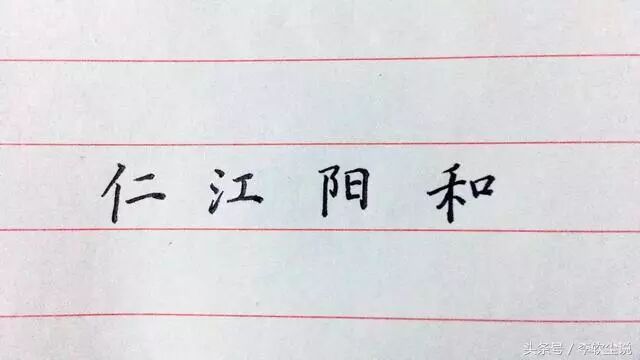 仁江阳和
头条号 / 李软尘说